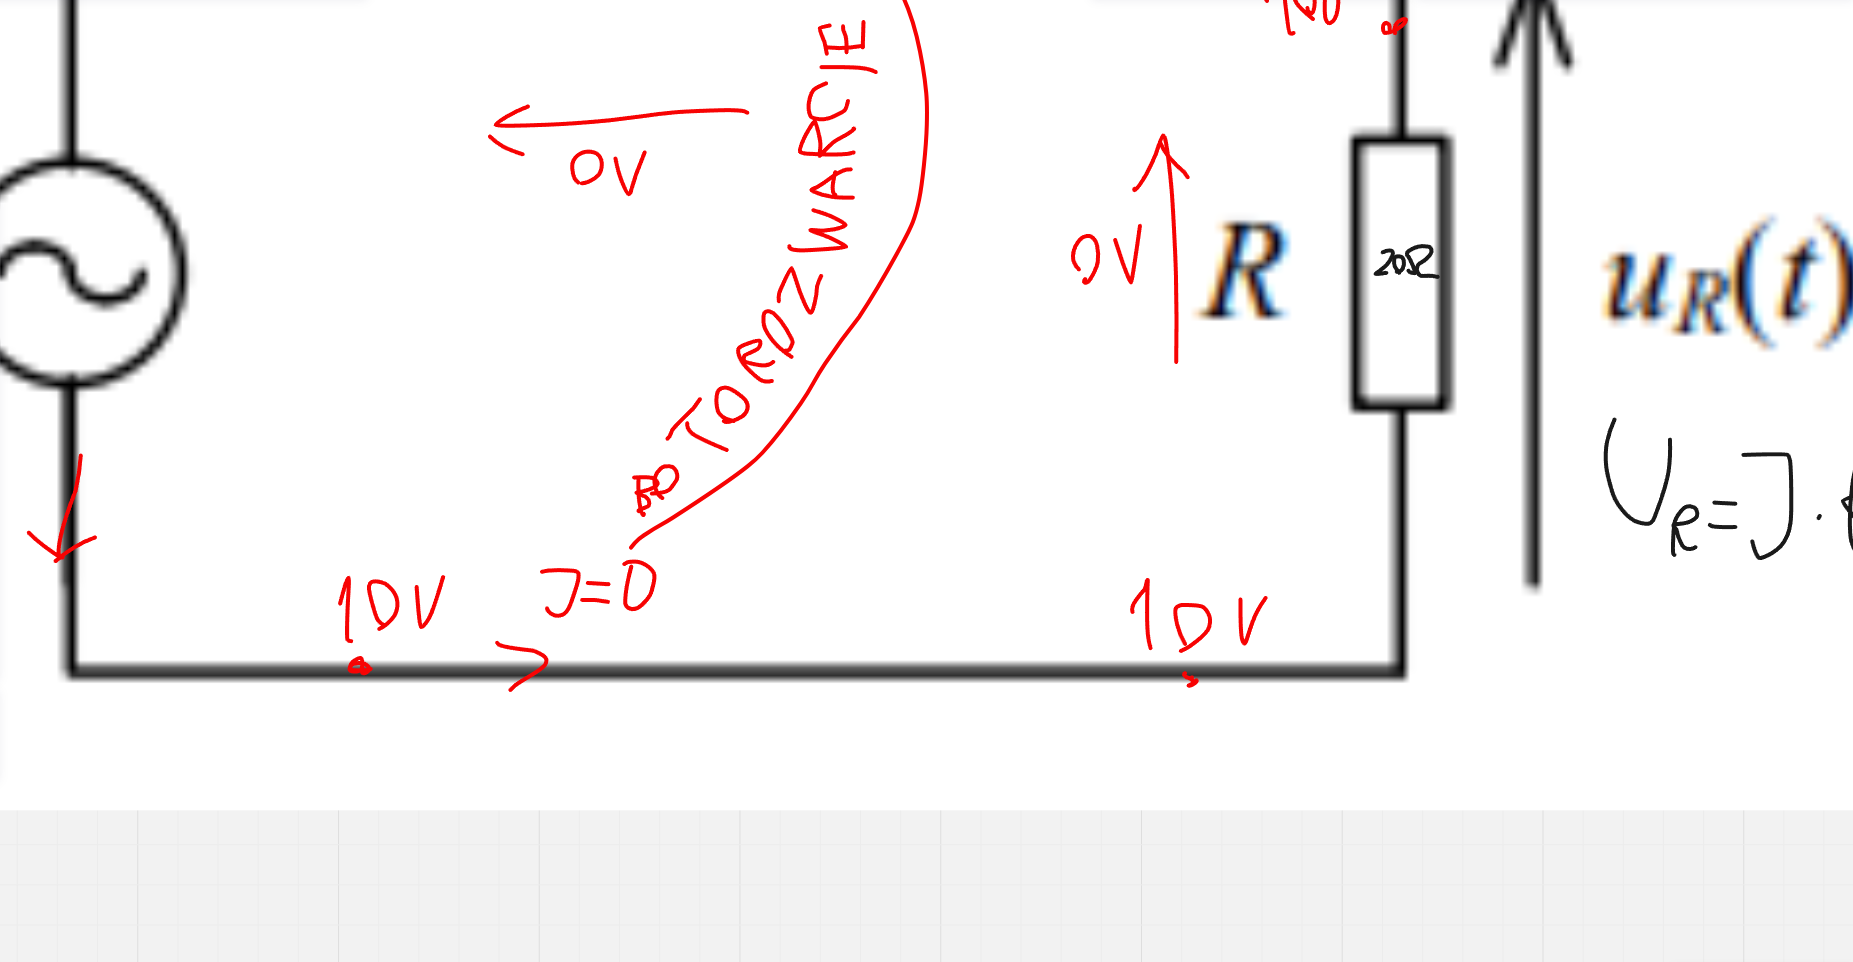 0V
BO TO ROZWARCIE
0V
R
20Ω
u_R(t)
U_R = J ·
10V
J=0
10V